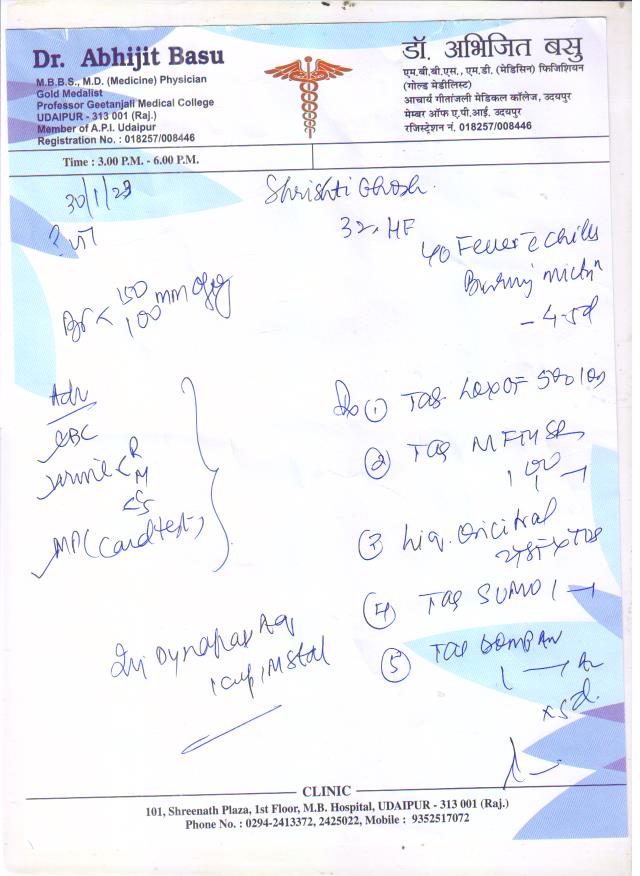 Dr. Abhijit Basu
M.B.B.S., M.D. (Medicine) Physician
Gold Medalist
Professor Geetanjali Medical College
UDAIPUR - 313 001 (Raj.)
Member of A.P.I. Udaipur
Registration No. : 018257/008446
डॉ. अभिजित बसु
एम.बी.बी.एस., एम.डी. (मेडिसिन) फिजिशियन
(गोल्ड मेडीलिस्ट)
आचार्य गीतांजली मेडिकल कॉलेज, उदयपुर
मेम्बर ऑफ ए.पी.आई. उदयपुर
रजिस्ट्रेशन नं. 018257/008446
Time : 3.00 P.M. - 6.00 P.M.
30/1/23
Shrishti Ghosh.
32. HF
Fever c chills
Burning
- 4-5d
150
100 mm
Adv
CBC
Urine < R
M
CS
MP (Card test)
① TAB 500 1OD
② TAB
③ Liq.
④ TAB SUMO 1
⑤ TAB
x5d.
Inj Dynapar Aq
1 amp IM Stat
CLINIC
101, Shreenath Plaza, 1st Floor, M.B. Hospital, UDAIPUR - 313 001 (Raj.)
Phone No. : 0294-2413372, 2425022, Mobile : 9352517072